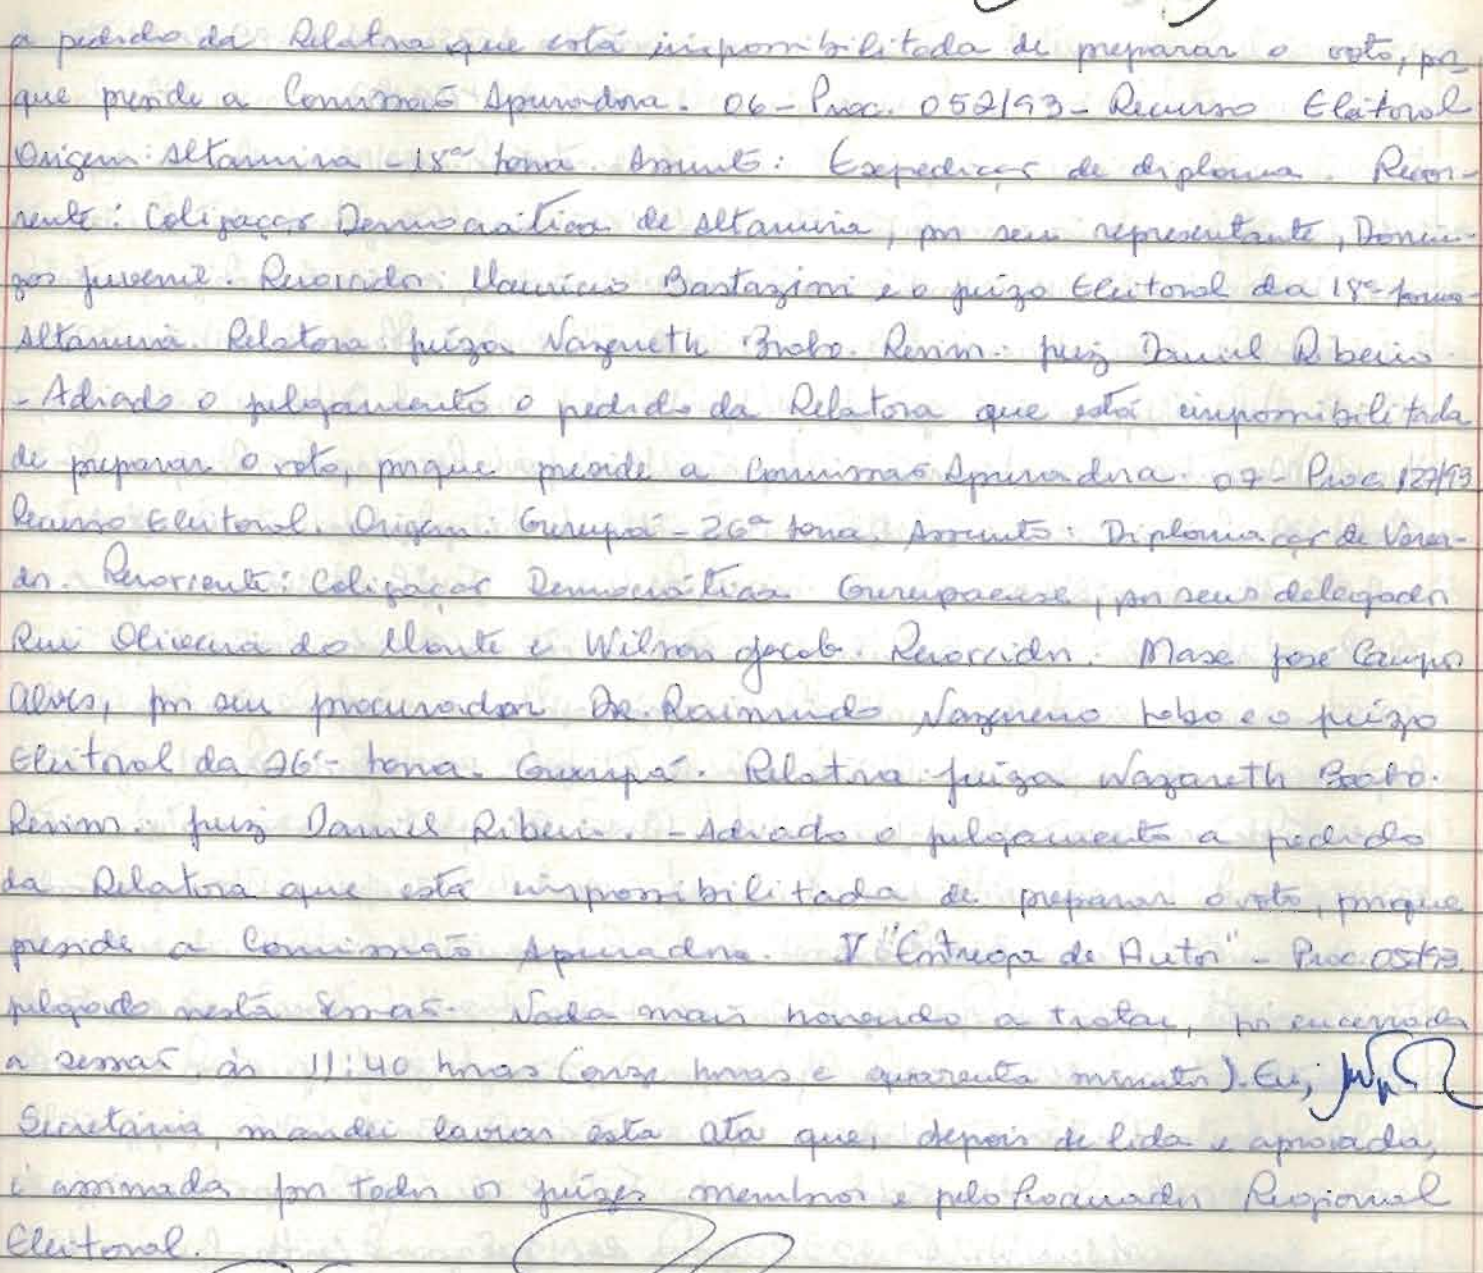 a pedido da Relatora que está impossibilitada de preparar o voto, por
que preside a Comissão Apuradora. 06 - Proc. 052/93 - Recurso Eleitoral
Origem: Altamira - 18ª zona. Assunto: Expedição de diploma. Recor-
rente: Coligação Democrática de Altamira, por seu representante, Domin-
gos Juvenil. Recorrido: Maurício Bastazini e o juízo Eleitoral da 18ª zona
Altamira. Relatora: juíza Nazareth Brabo. Revisor: juiz Daniel Ribeiro.
- Adiado o julgamento o pedido da Relatora que está impossibilitada
de preparar o voto, porque preside a Comissão Apuradora. 07 - Proc 127/93
Recurso Eleitoral. Origem: Gurupá - 26ª zona. Assunto: Diplomação de Verea-
dor. Recorrente: Coligação Democrática Gurupaense, por seus delegados
Rui Oliveira do Monte e Wilson Jacob. Recorrido: Max José Campos
Alves, por seu procurador Dr. Raimundo Nazareno Lobo e o juízo
Eleitoral da 26ª zona. Gurupá. Relatora juíza Nazareth Brabo.
Revisor: juiz Daniel Ribeiro. - Adiado o julgamento a pedido
da Relatora que está impossibilitada de preparar o voto, porque
preside a Comissão Apuradora. V "Entrega de Autos" - Proc. 05/93.
julgado nesta sessão. Nada mais havendo a tratar, foi encerrada
a sessão, às 11:40 horas (onze horas e quarenta minutos). Eu,
Secretária, mandei lavrar esta ata que, depois de lida e aprovada,
é assinada por todos os juízes membros e pelo Procurador Regional
Eleitoral.